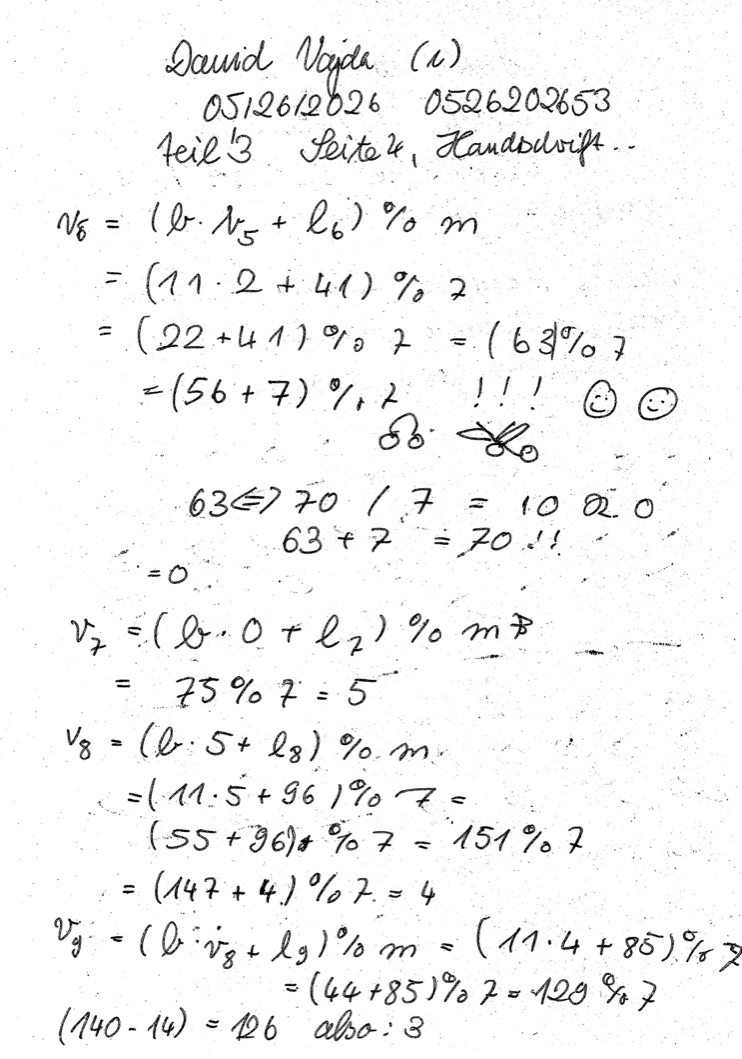 David Vajda (1)
0512612026 0526202653
Teil 3 Seite 4, Handschrift..
v₆ = (b · v₅ + l₆) % m
= (11 · 2 + 41) % 7
= (22 + 41) % 7 = (63) % 7
= (56 + 7) % 7 !!!
63 <=> 70 / 7 = 10 R 0
63 + 7 = 70 !!
= 0
v₇ = (b · 0 + l₇) % m
= 75 % 7 = 5
v₈ = (b · 5 + l₈) % m
= (11 · 5 + 96) % 7 =
(55 + 96) % 7 = 151 % 7
= (147 + 4) % 7 = 4
v₉ = (b · v₈ + l₉) % m = (11 · 4 + 85) % 7
= (44 + 85) % 7 = 129 % 7
(140 - 14) = 126 also : 3